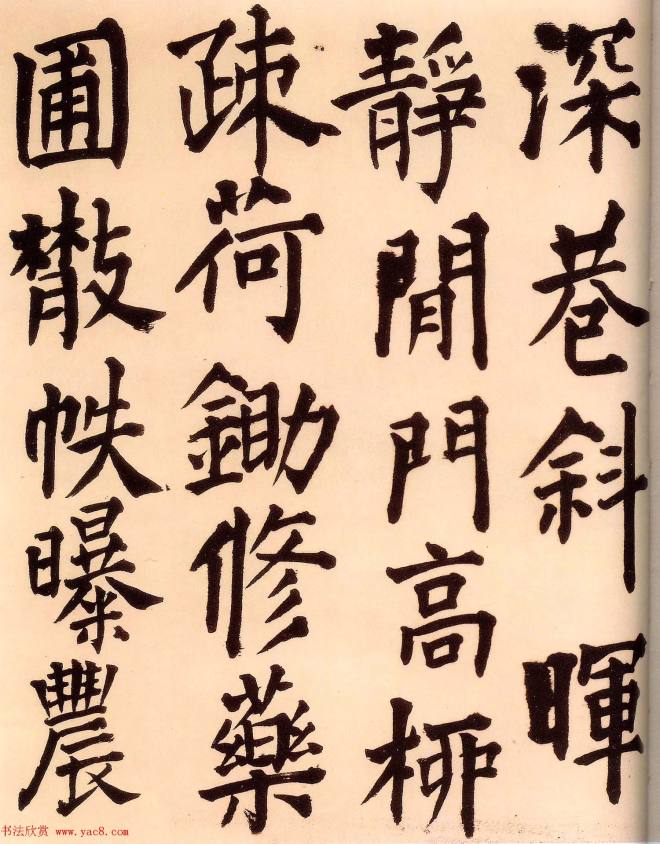 深巷斜暉
靜閒門高柳
疎荷鋤修藥
圃散帙曝農
书法欣赏 www.yac8.com